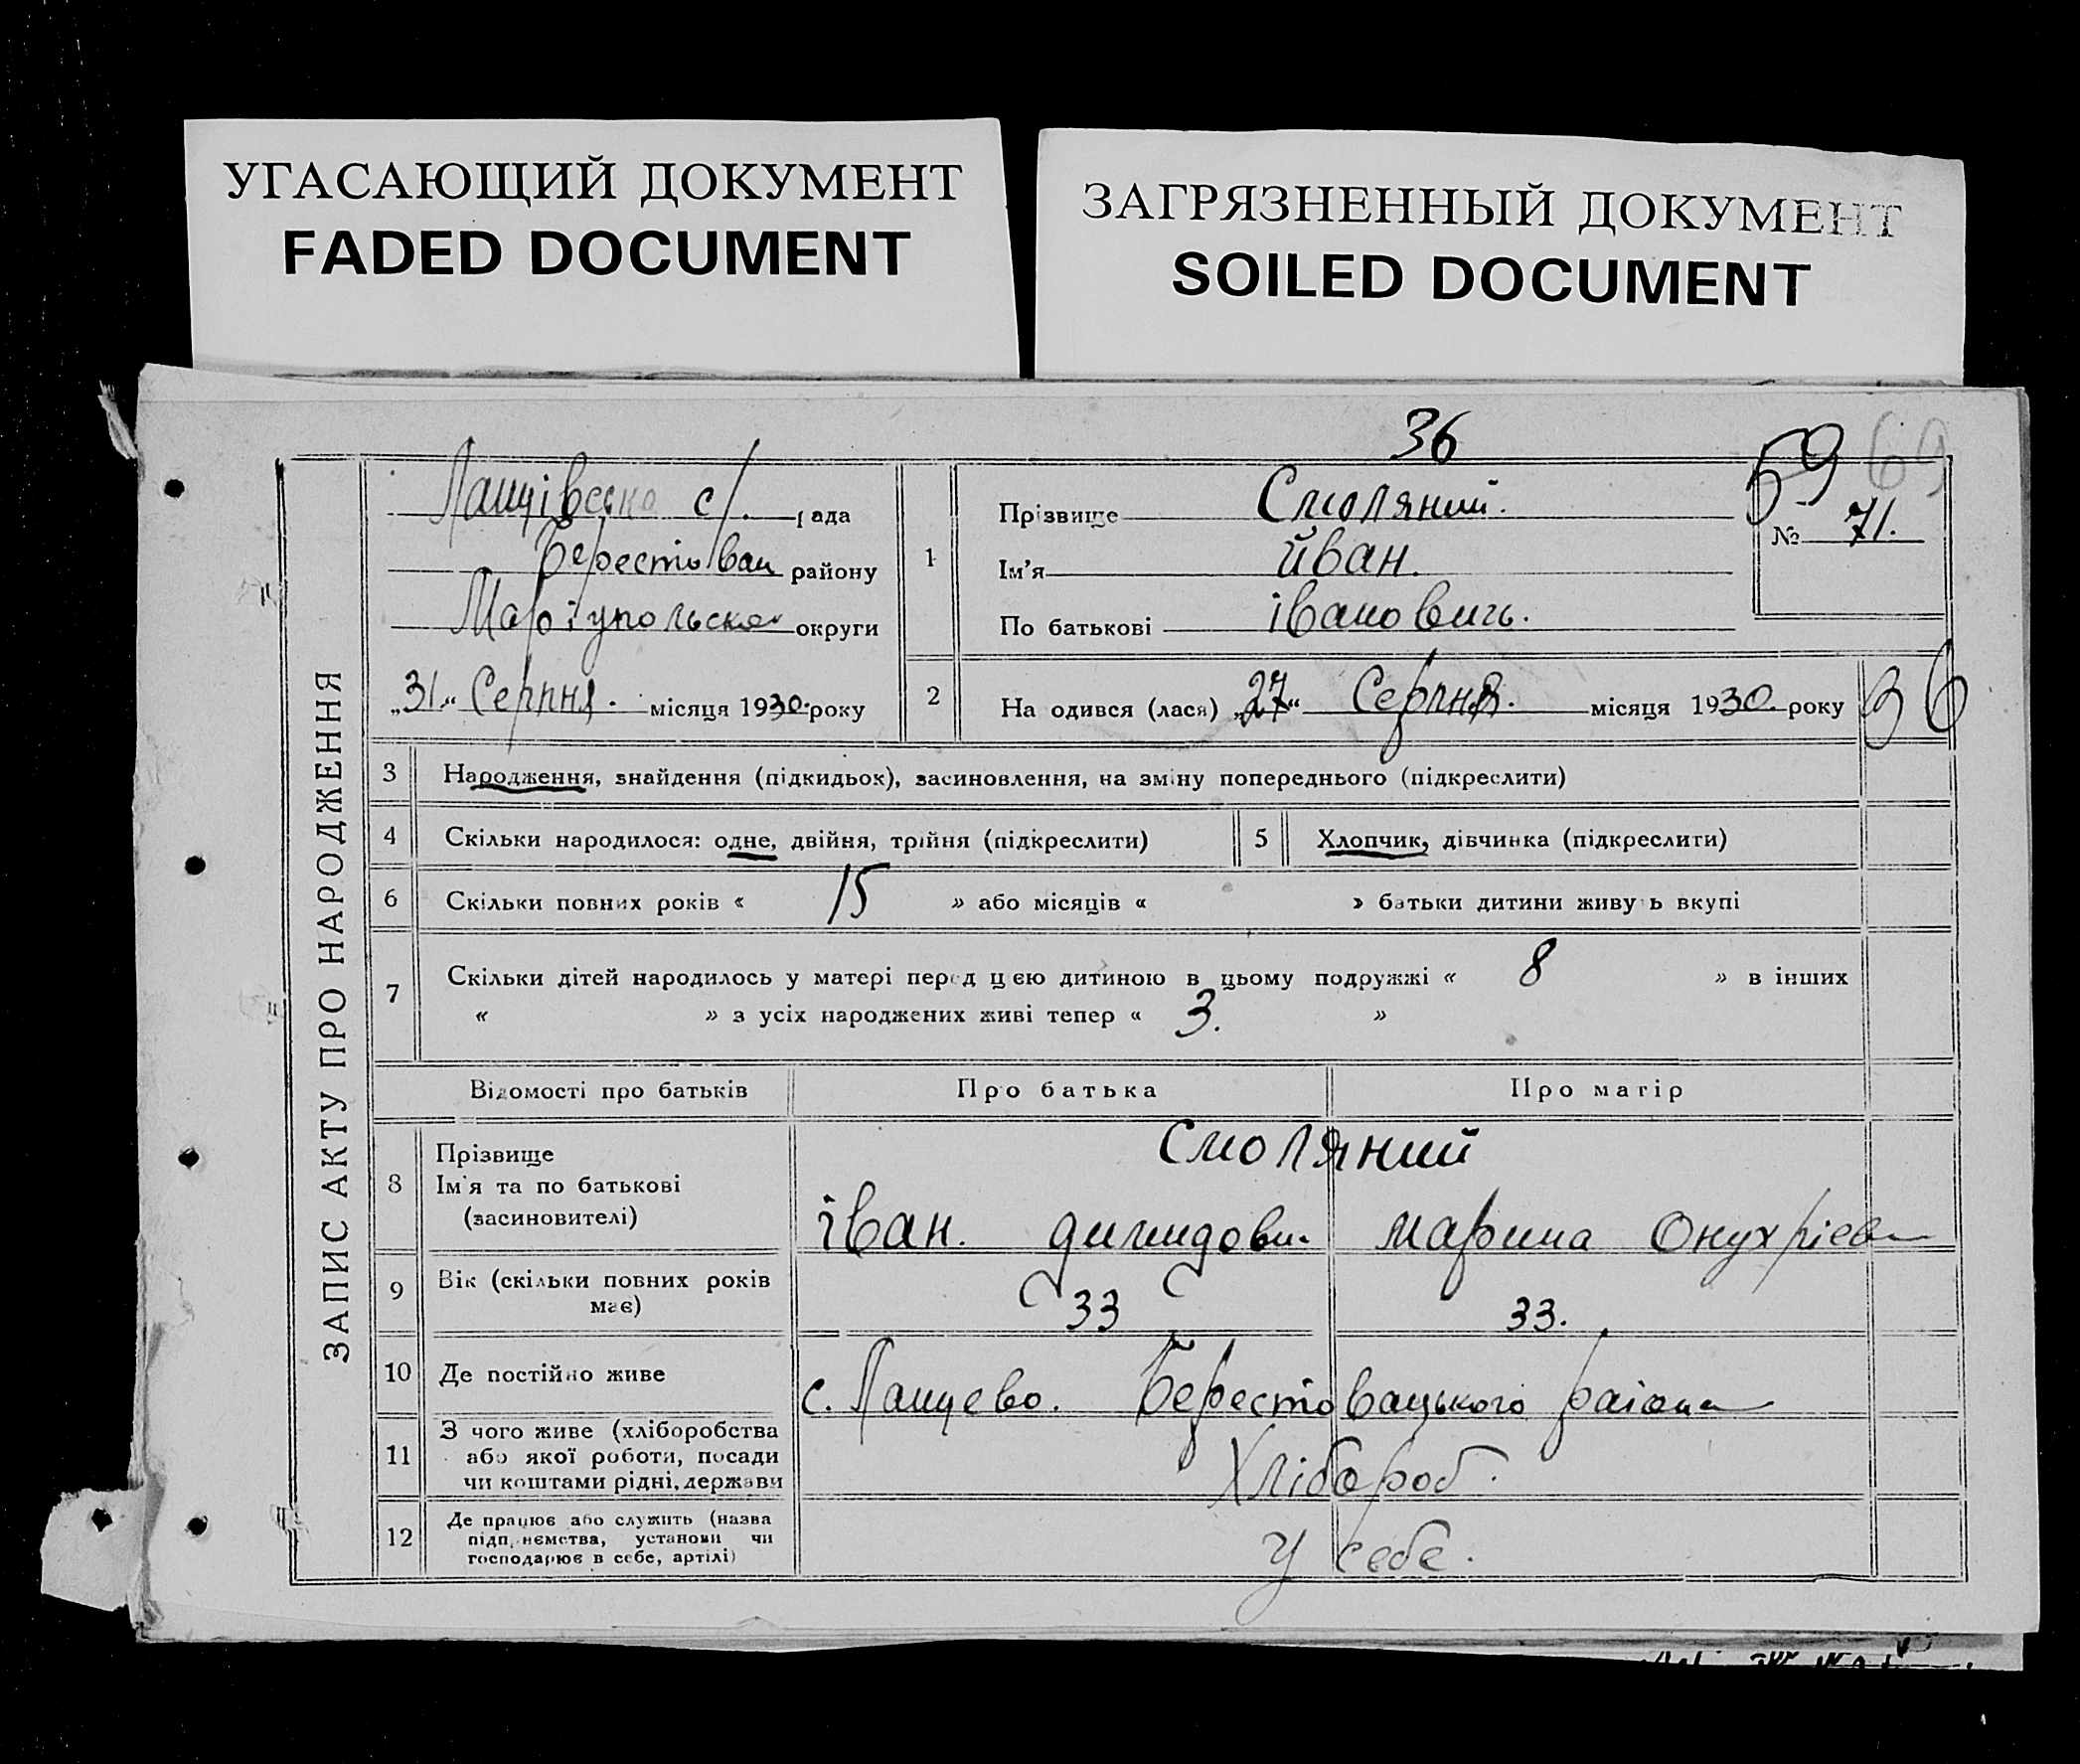 УГАСАЮЩИЙ ДОКУМЕНТ
FADED DOCUMENT
ЗАГРЯЗНЕННЫЙ ДОКУМЕНТ
SOILED DOCUMENT
36
59 69
ЗАПИС АКТУ ПРО НАРОДЖЕННЯ
Ланцівська с/. рада
Берестован району
Маріупольска округи
„31.“ Серпня. місяця 1930. року
1
Прізвище Смоляний.
Ім'я Йван.
По батькові івановичь.
№ 71.
2 На одився (лася) „27“ Серпня. місяця 1930. року
36
3 Народження, знайдення (підкидьок), засиновлення, на зміну попереднього (підкреслити)
4 Скільки народилося: одне, двійня, трійня (підкреслити) 5 Хлопчик, дівчинка (підкреслити)
6 Скільки повних років « 15 » або місяців « » батьки дитини живуть вкупі
7 Скільки дітей народилось у матері перед цею дитиною в цьому подружжі « 8 » в інших
« » з усіх народжених живі тепер « 3. »
Відомості про батьків Про батька Про матір
8 Прізвище
Ім'я та по батькові
(засиновителі)
Смоляний
іван. Марина Онухрієв
9 Вік (скільки повних років
має)
33 33.
10 Де постійно живе с. Ланцево. Берестовацького раіона
11 З чого живе (хліборобства
або якої роботи, посади
чи коштами рідні, держави
Хлібороб.
12 Де працює або служить (назва
підприємства, установи чи
господарює в себе, артілі)
У себе.